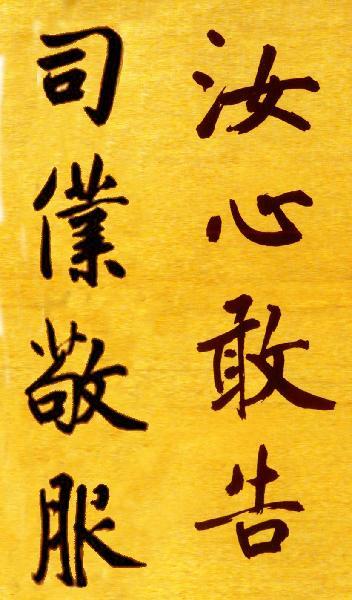 汝心敢告
司僕敬服